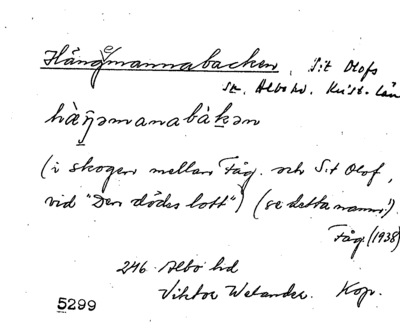 Hångemannabacken, S:t Olofs
sn. Albo hd. Krist. län
hàŋəmanabàkən
(i skogen mellan Fåg. och S:t Olof,
vid "Den dödes lott") (se detta namn!).
Fåg. (1938)
246 Albo hd
Viktor Welander. Kop.
5299